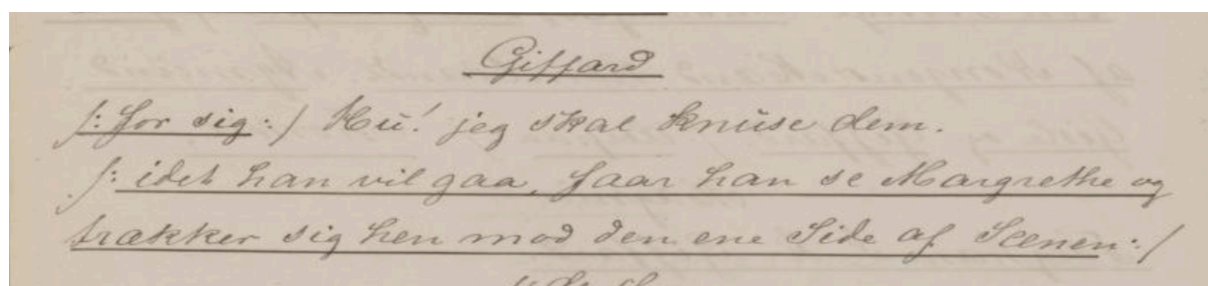 Giffard
/: for sig :/ Hu! jeg skal knuse dem.
/: idet han vil gaa, faar han se Margrethe og
trækker sig hen mod den ene Side af Scenen :/